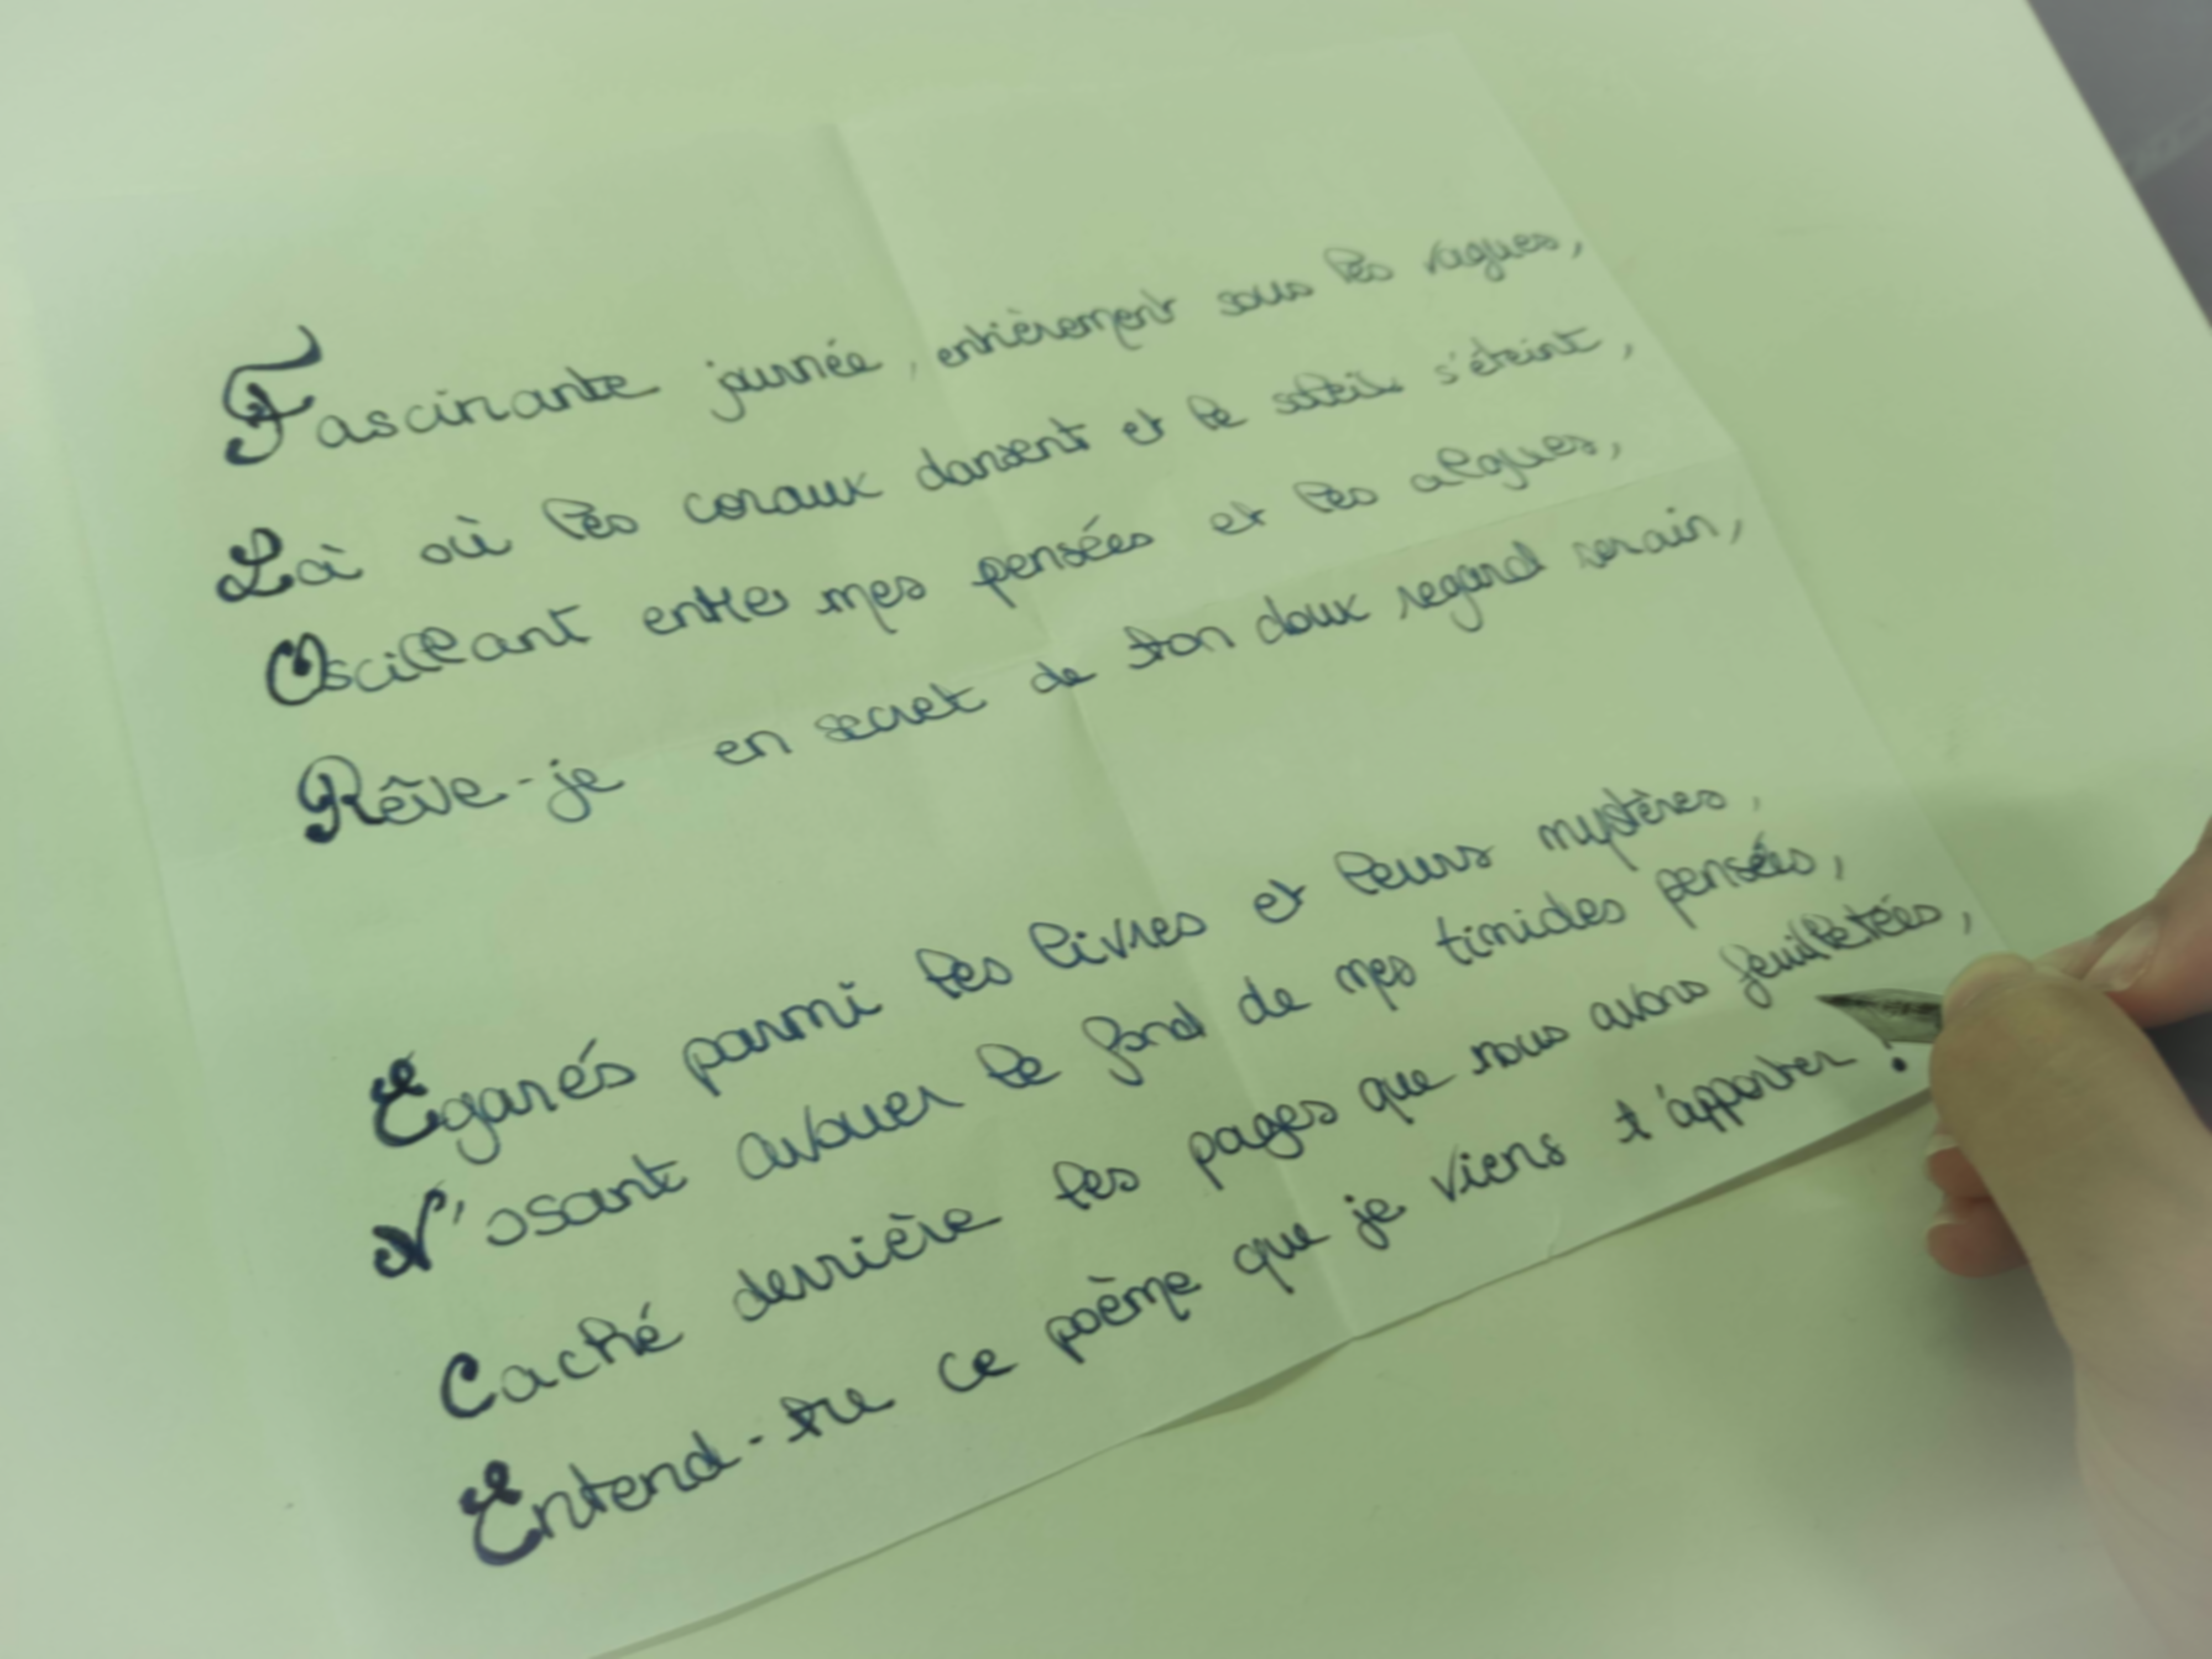 Fascinante journée, entièrement sous les vagues,
Là où les coraux dansent et le soleil s'éteint,
Oscillant entre mes pensées et les algues,
Rêve-je en secret de ton doux regard serain,
Égarés parmi les livres et leurs mystères,
N'osant avouer le fond de mes timides pensées,
Caché derrière les pages que nous avons feuilletées,
Entend-tu ce poème que je viens t'apporter